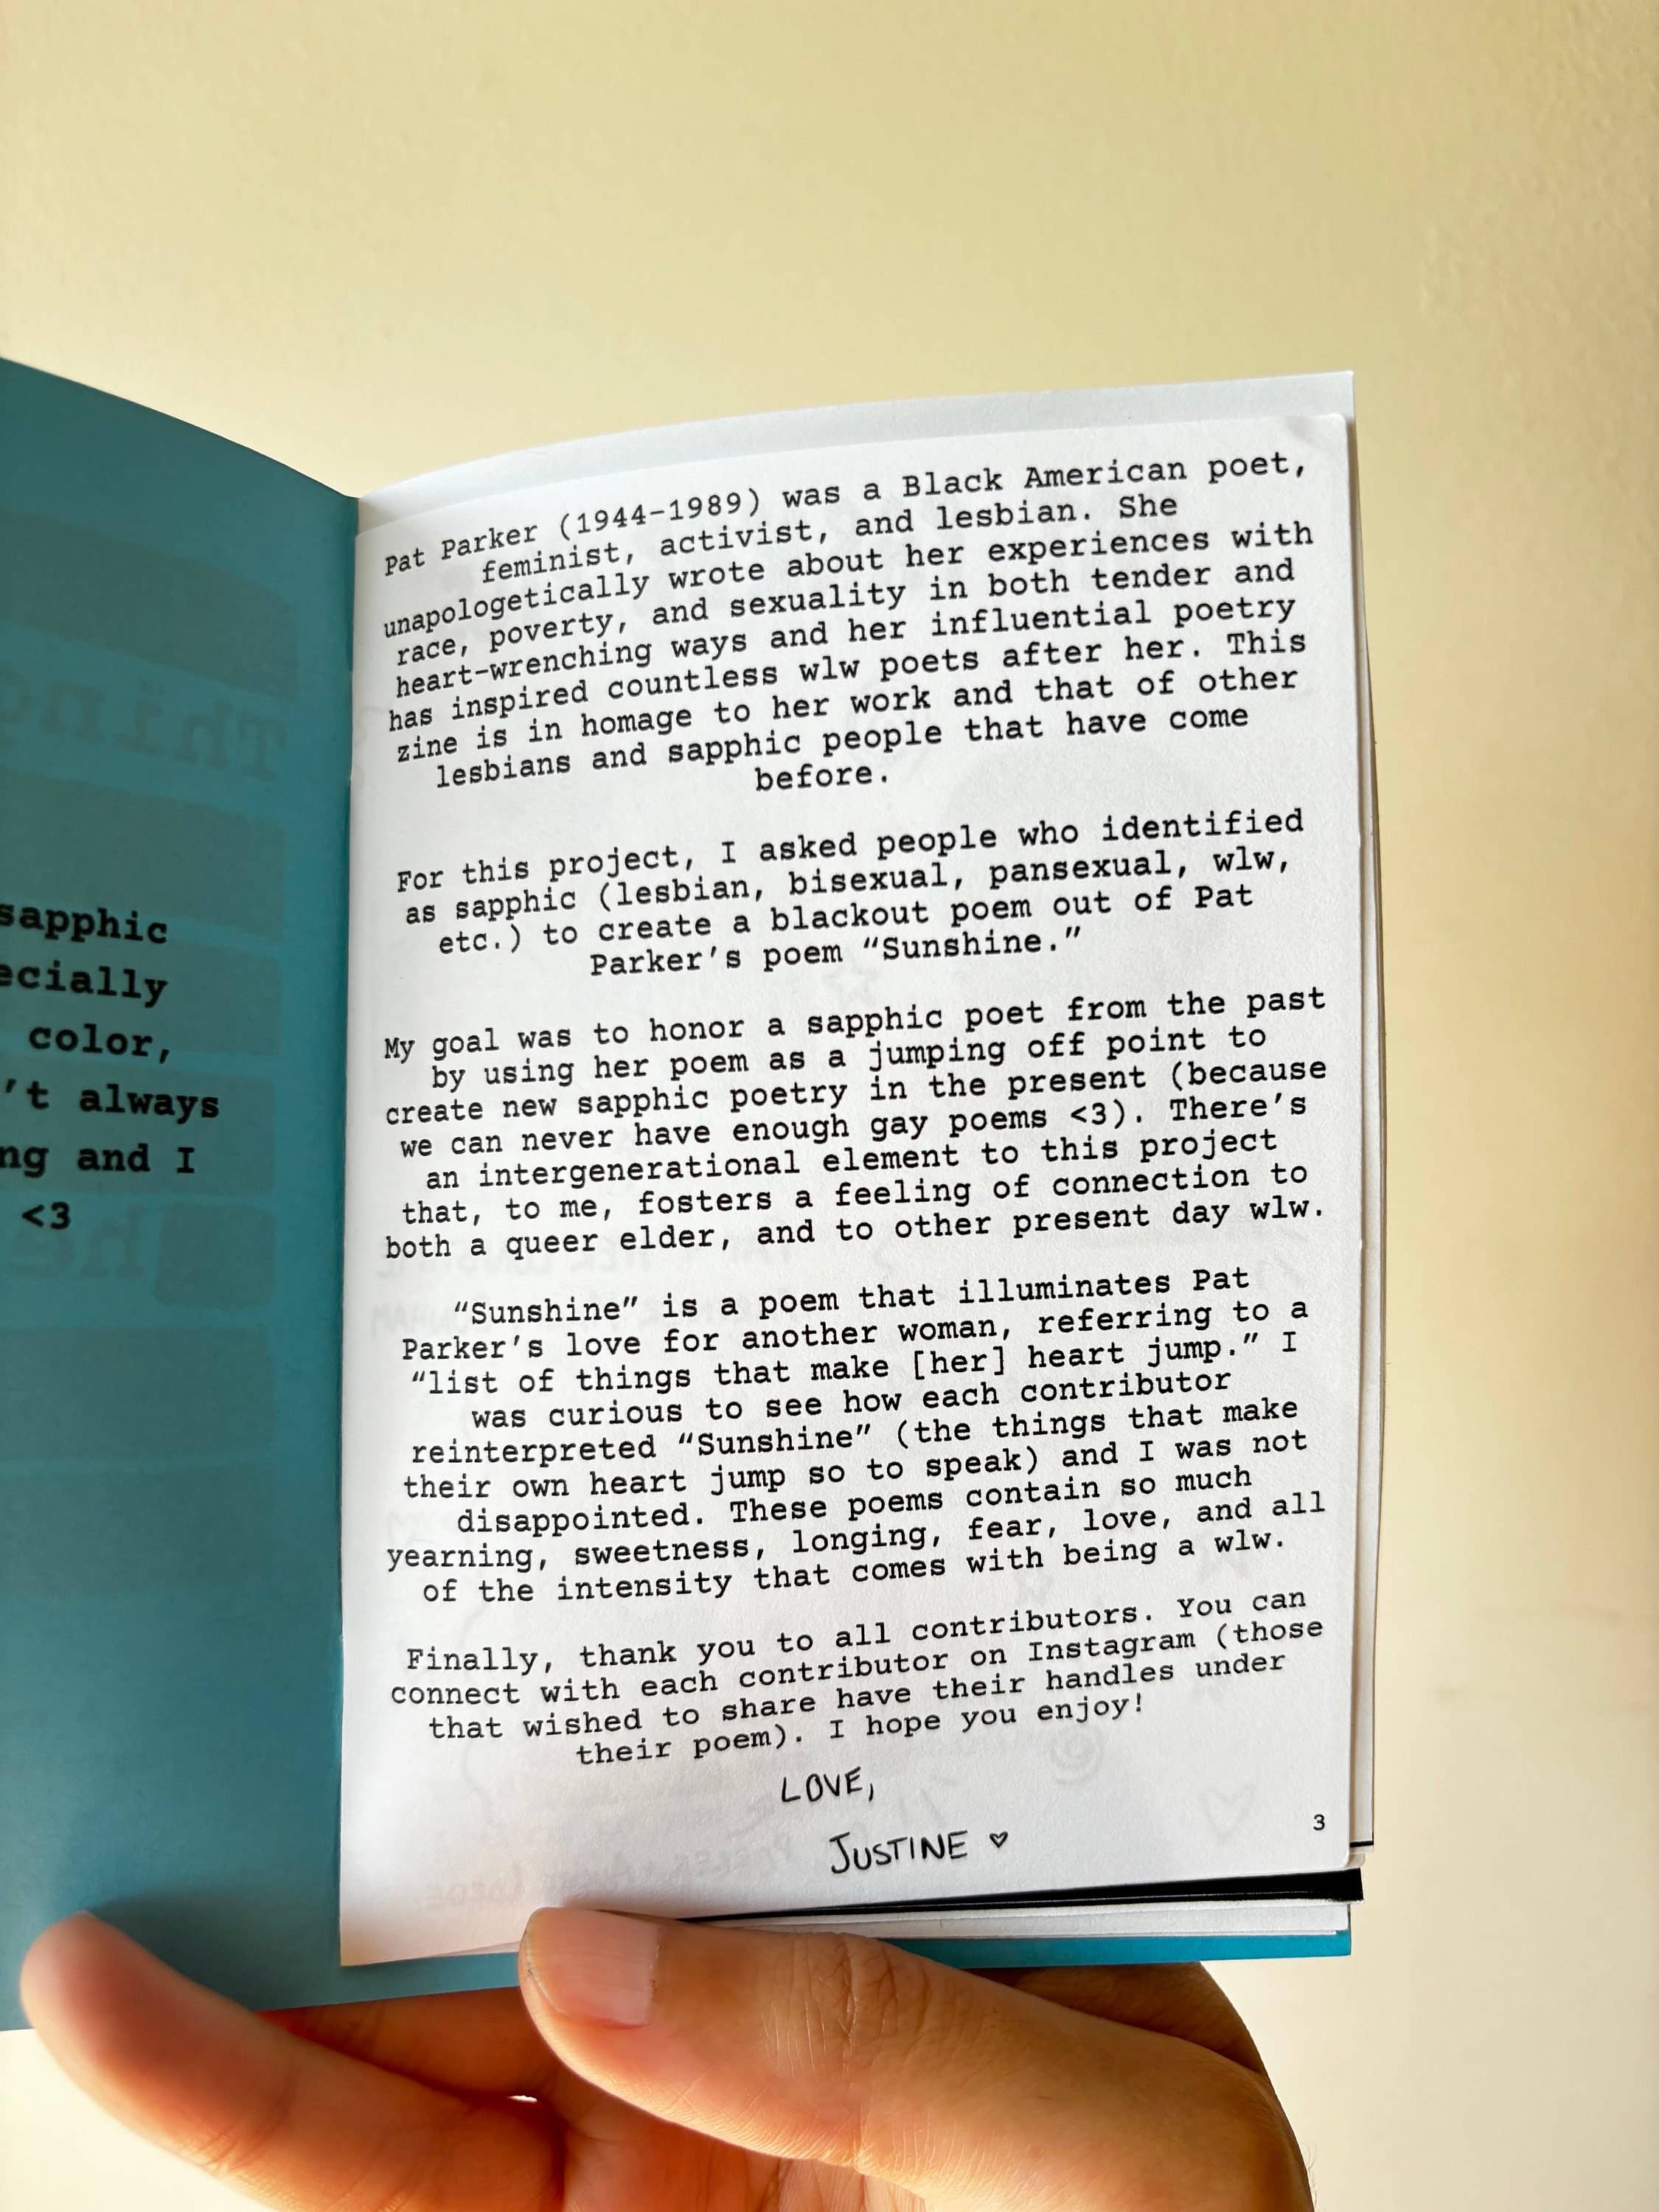 sapphic
color,
't always
and I
<3
Pat Parker (1944-1989) was a Black American poet,
feminist, activist, and lesbian. She
unapologetically wrote about her experiences with
race, poverty, and sexuality in both tender and
heart-wrenching ways and her influential poetry
has inspired countless wlw poets after her. This
zine is in homage to her work and that of other
lesbians and sapphic people that have come
before.
For this project, I asked people who identified
as sapphic (lesbian, bisexual, pansexual, wlw,
etc.) to create a blackout poem out of Pat
Parker's poem “Sunshine.”
My goal was to honor a sapphic poet from the past
by using her poem as a jumping off point to
create new sapphic poetry in the present (because
we can never have enough gay poems <3). There's
an intergenerational element to this project
that, to me, fosters a feeling of connection to
both a queer elder, and to other present day wlw.
“Sunshine” is a poem that illuminates Pat
Parker's love for another woman, referring to a
“list of things that make [her] heart jump.” I
was curious to see how each contributor
reinterpreted “Sunshine” (the things that make
their own heart jump so to speak) and I was not
disappointed. These poems contain so much
yearning, sweetness, longing, fear, love, and all
of the intensity that comes with being a wlw.
Finally, thank you to all contributors. You can
connect with each contributor on Instagram (those
that wished to share have their handles under
their poem). I hope you enjoy!
LOVE,
JUSTINE ♡
3